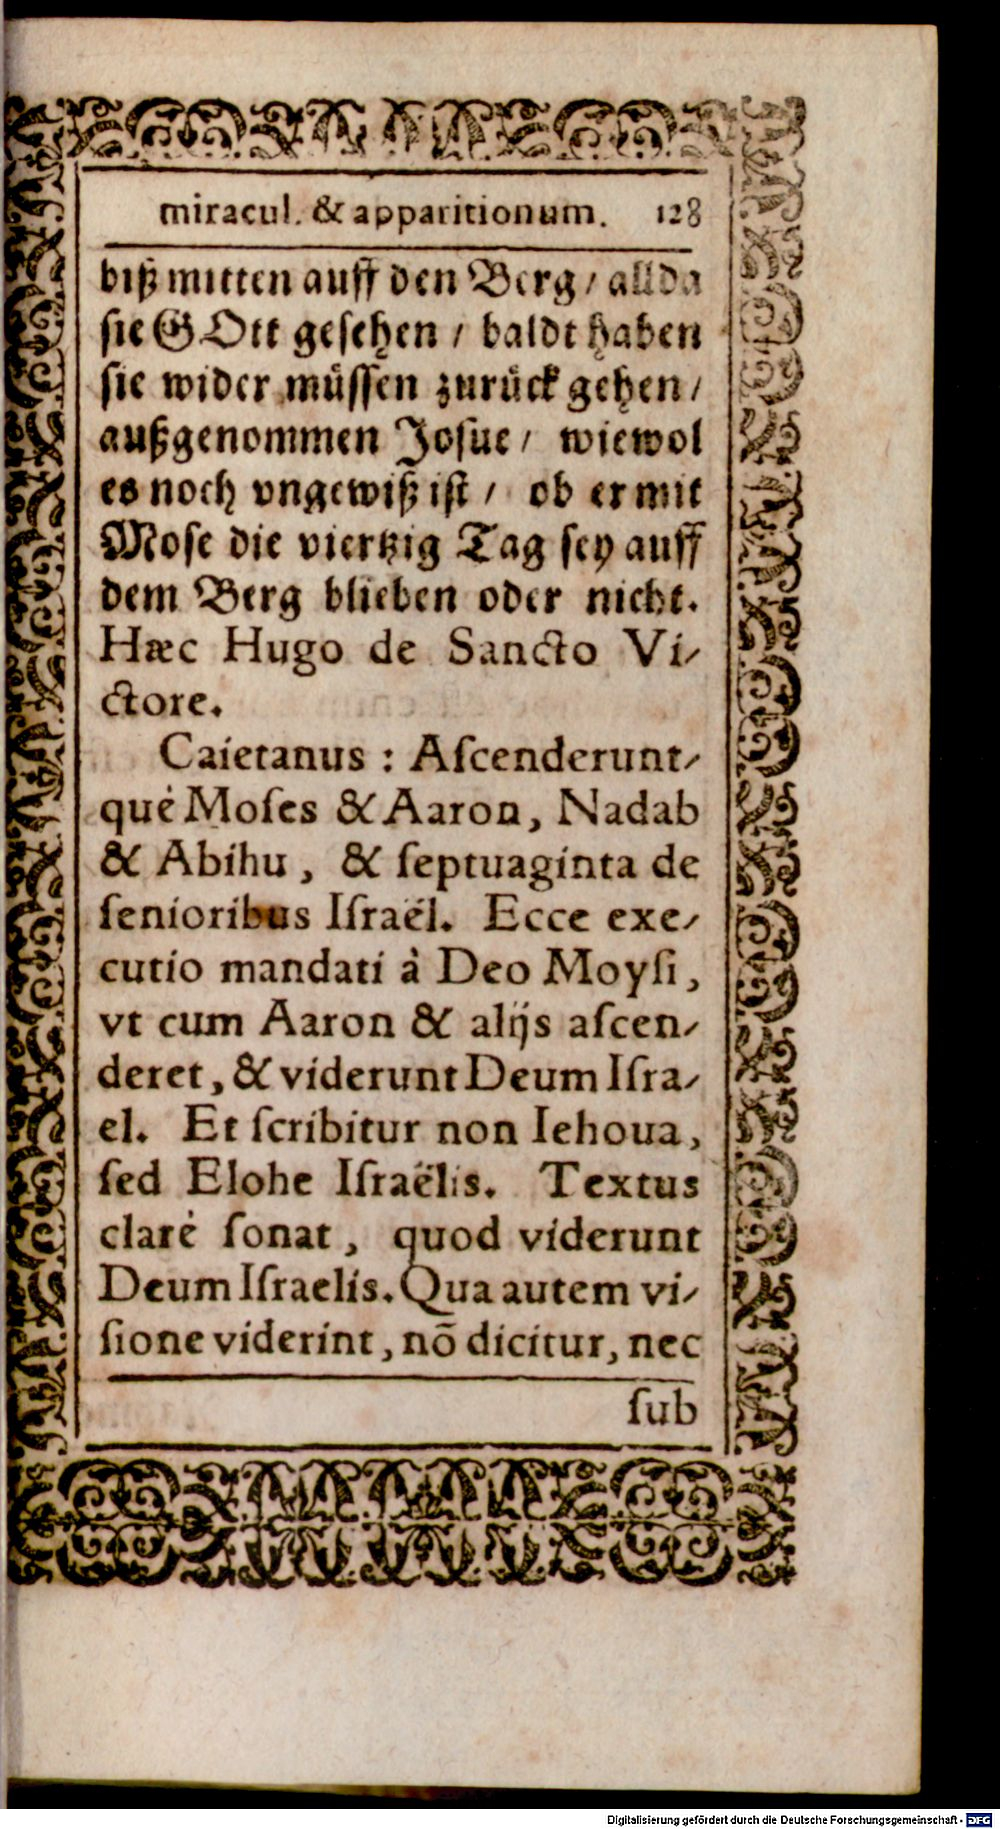 miracul. & apparitionum. 128
biß mitten auff den Berg / allda
sie GOtt gesehen / baldt haben
sie wider müssen zurück gehen /
außgenommen Josue / wiewol
es noch vngewiß ist / ob er mit
Mose die viertzig Tag sey auff
dem Berg blieben oder nicht.
Hæc Hugo de Sancto Vi-
ctore.
Caietanus : Aſcenderunt-
qué Moſes & Aaron, Nadab
& Abihu, & ſeptuaginta de
ſenioribus Iſraël. Ecce exe-
cutio mandati à Deo Moyſi,
vt cum Aaron & alijs aſcen-
deret, & viderunt Deum Iſra-
el. Et ſcribitur non Iehoua,
ſed Elohe Iſraëlis. Textus
claré ſonat, quod viderunt
Deum Iſraelis. Qua autem vi-
ſione viderint, nō dicitur, nec
ſub
Digitalisierung gefördert durch die Deutsche Forschungsgemeinschaft - DFG